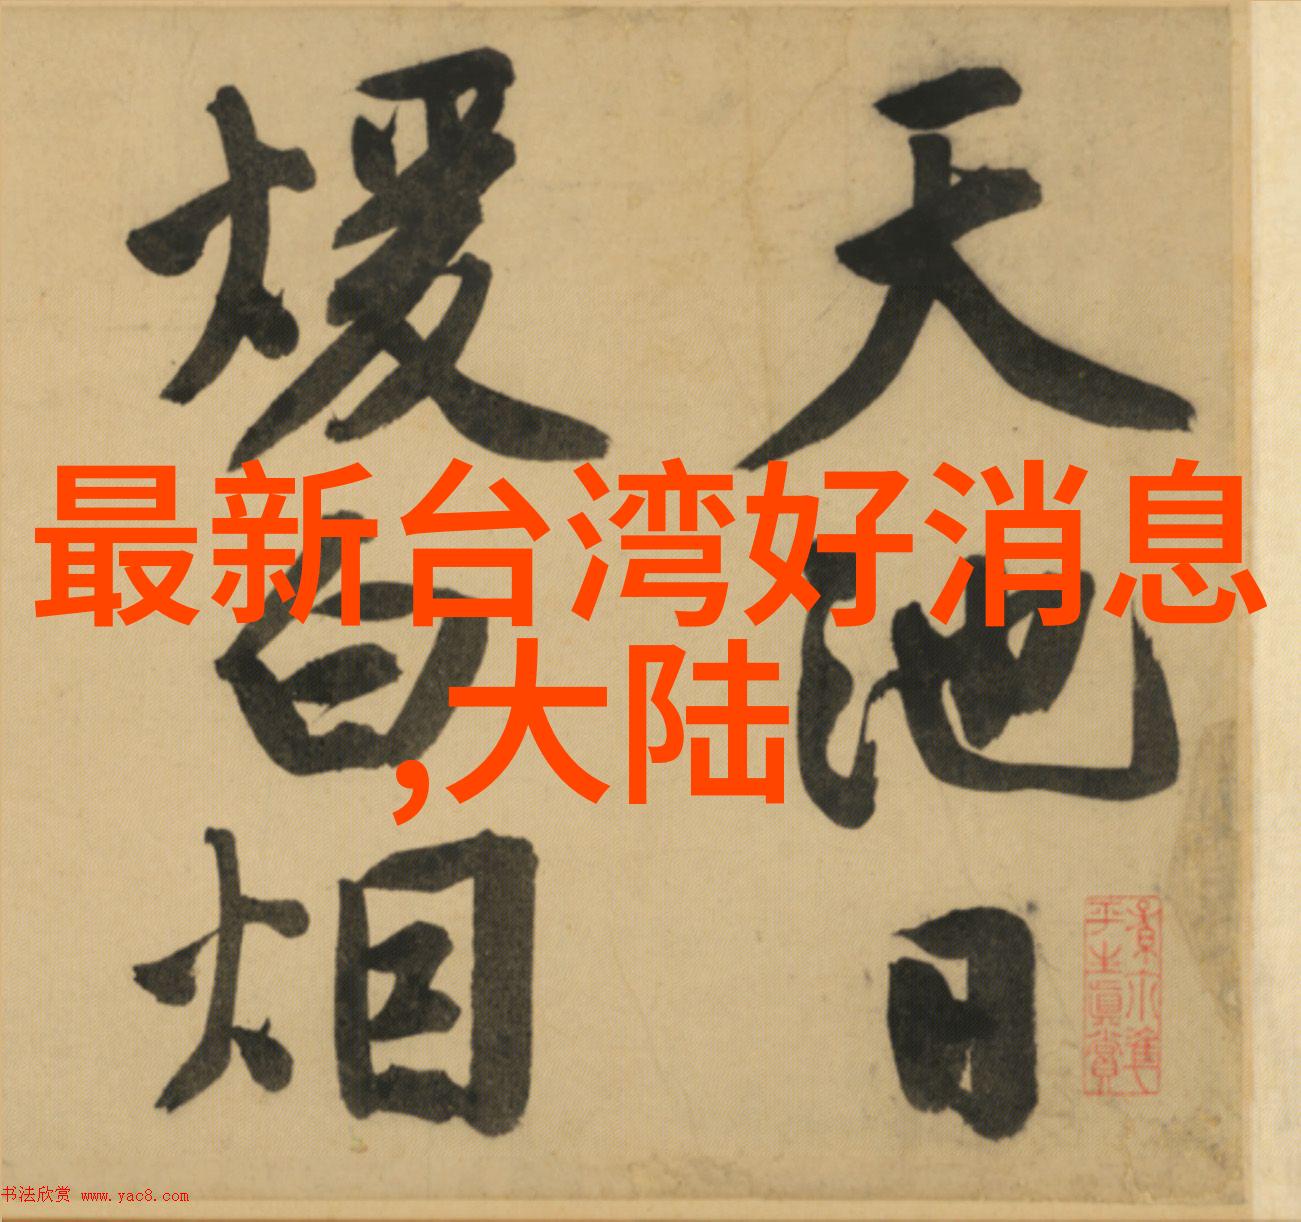 天池日
煖白烟
最新台湾好消息
,大陆
平生真賞
书法欣赏 www.yac8.com